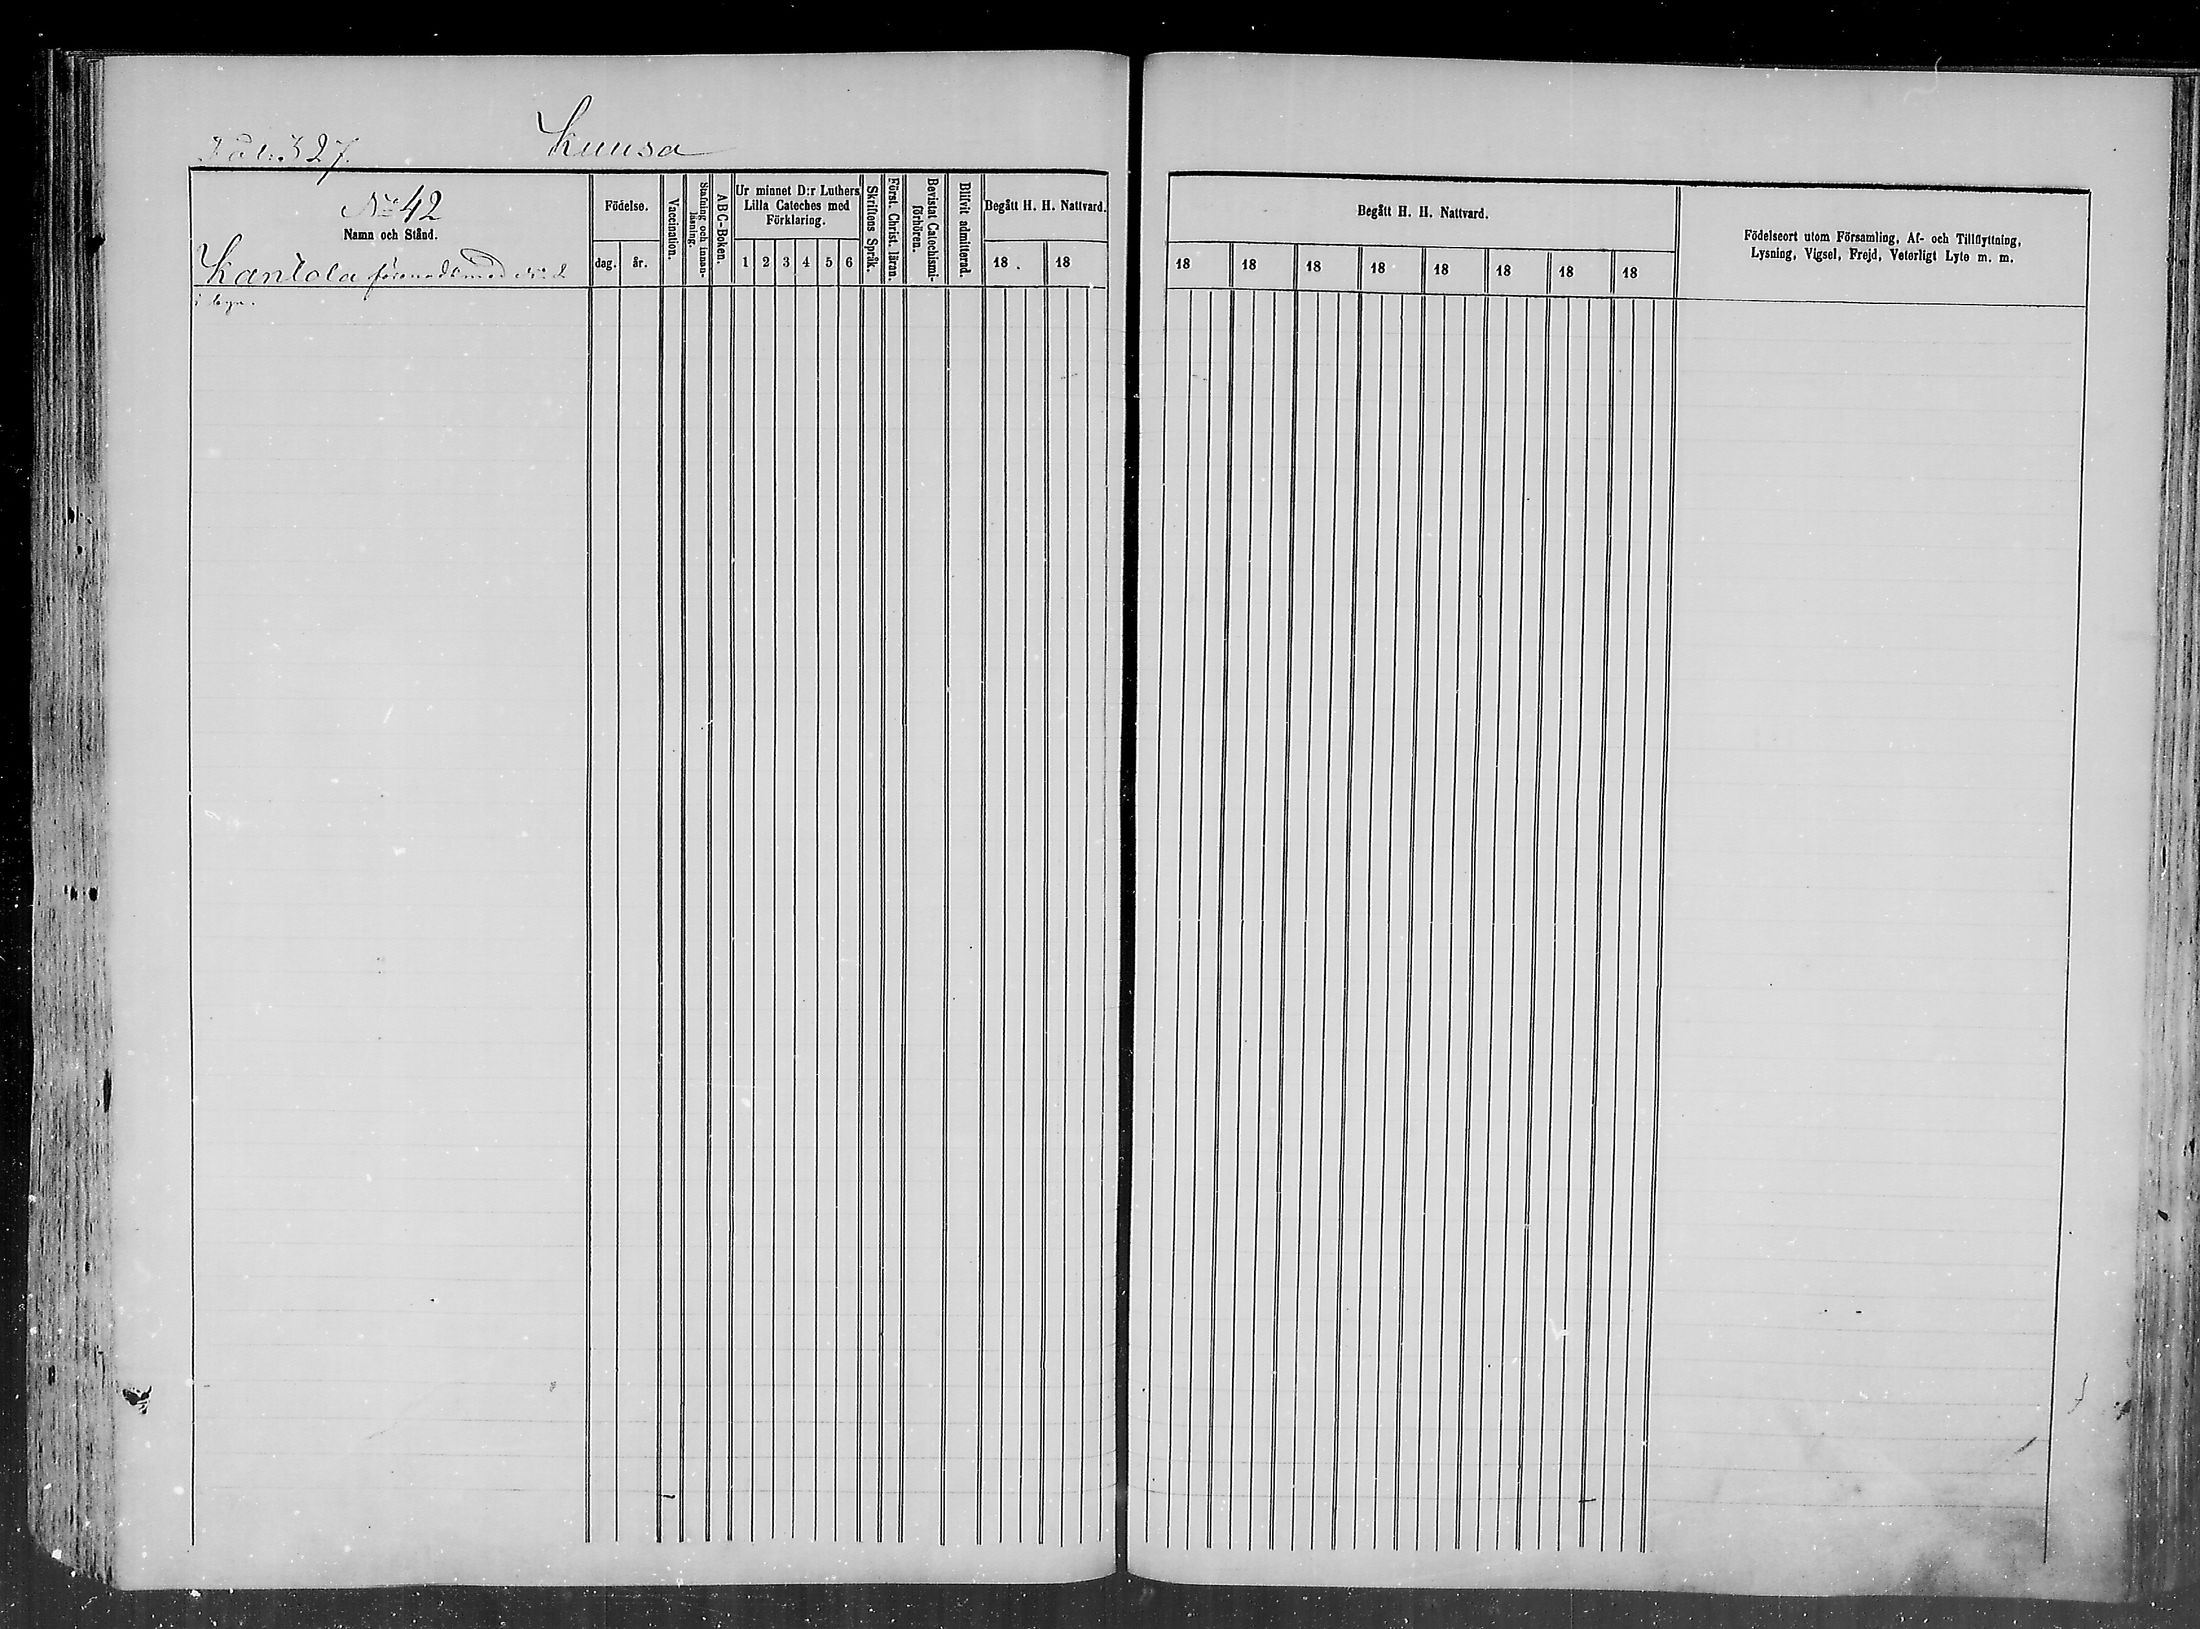 Pål. 327. Kuusa
No 42
Namn och Stånd.
Kantola förenadt med No 2
i byn.
Födelse.
dag. år.
Vaccination.
Stafning och innan-
läsning.
ABC-Boken.
Ur minnet D:r Luthers
Lilla Cateches med
Förklaring.
1 2 3 4 5 6
Skriftens Språk.
Först. Christ. läran.
Bevistat Catechismi-
förhören.
Blifvit admitterad.
Begått H. H. Nattvard.
18 18
Begått H. H. Nattvard.
18 18 18 18 18 18 18 18
Födelseort utom Församling, Af- och Tillflyttning,
Lysning, Vigsel, Frejd, Veterligt Lyte m. m.